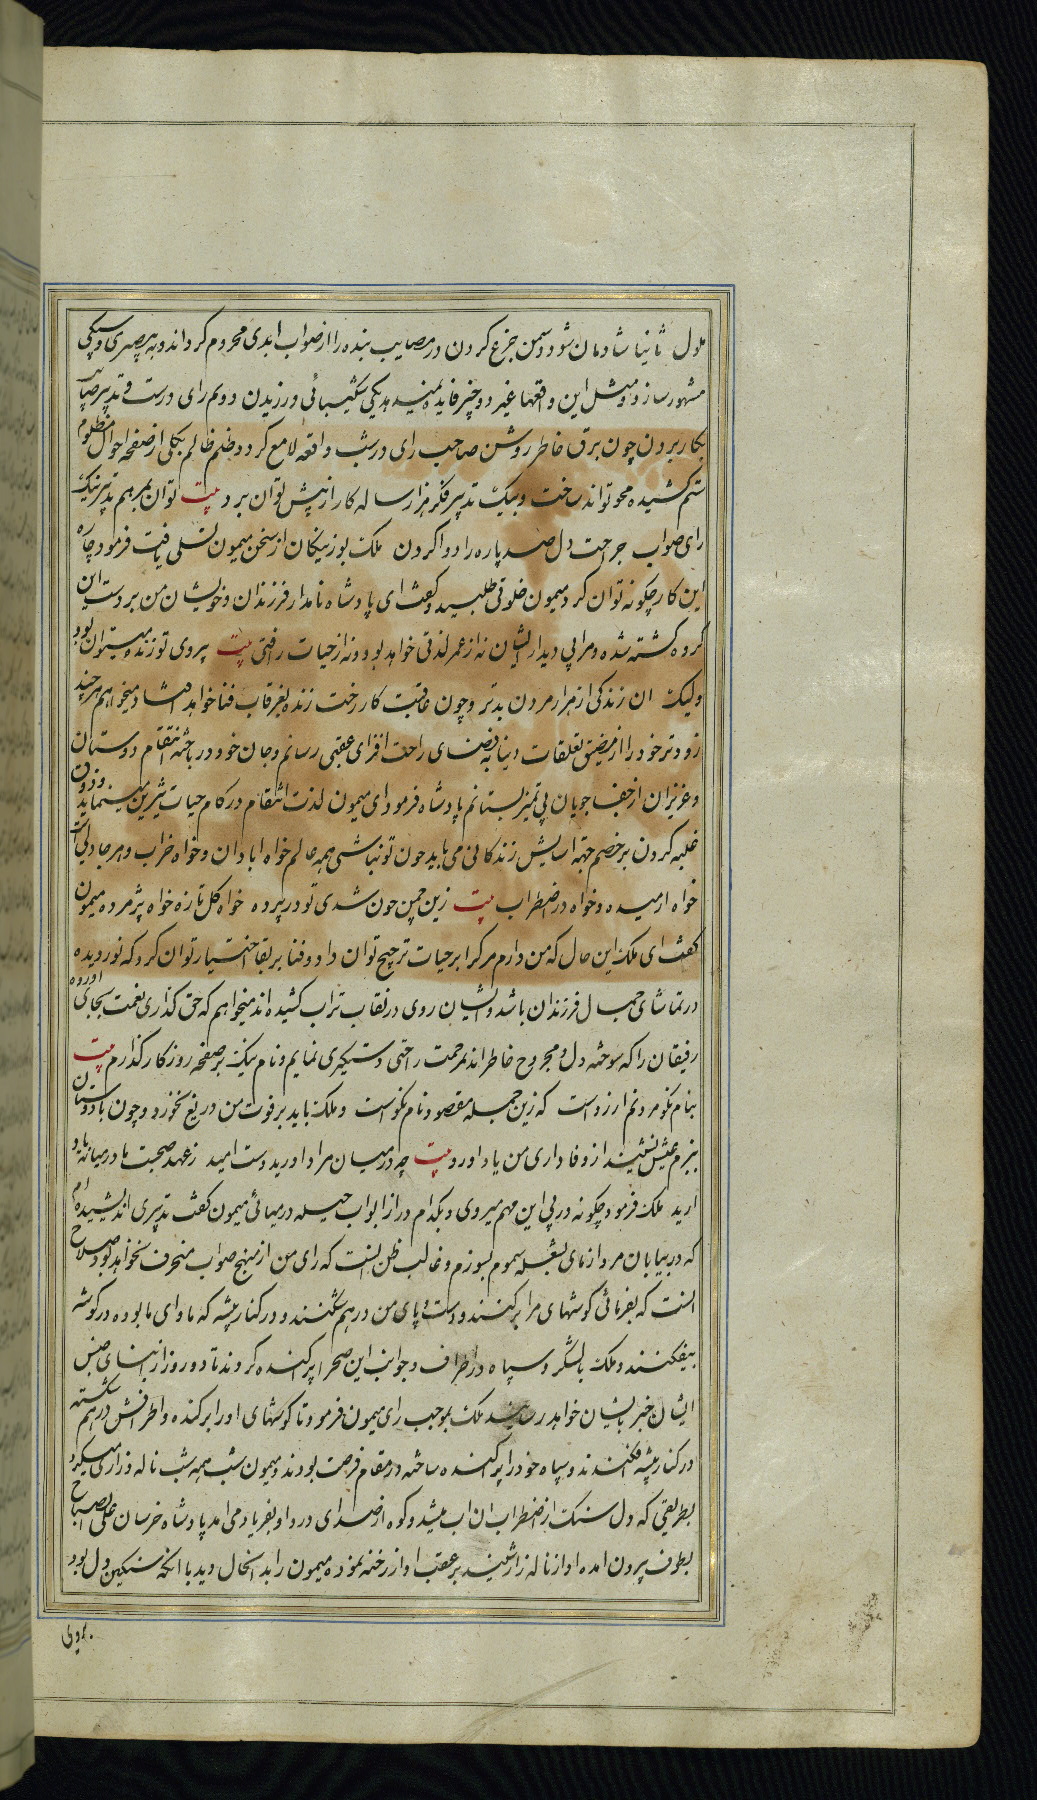 ملول ثانیا شادمان شود و دشمن جزع کردن در مصایب بنده را از ثواب ابدی محروم گرداند و به بی‌صبری و سبکی
مشهور سازد و مثل این واقعها غیر دو چیز فایده نمیدهد یکی شکیبائی ورزیدن دویم رای درست و تدبیر صایب
بکار بردن چون برق خاطر روشن صاحب رای در شب واقعه لامع گردد و ظلم ظالم بکلی از صفحه احوال مظلوم
ستم کشیده محو تواند ساخت و بیک تدبیر فکر هزار ساله کار از پیش توان برد بیت توان بمرهم تدبیر نیک
رای صواب جراحت دل صد پاره را دوا کردن ملک بوزینگان از سخن میمون تسلی یافت فرمود چاره
این کار چگونه توان کرد میمون خلوتی طلبید و گفت ای پادشاه نامدار فرزندان و خویشان من بر دست این
گروه کشته شده و مرا بی دیدار ایشان نه از عمر لذتی خواهد بود و نه از حیات راحتی بیت بیروی تو زنده میتوان بود
ولیک ان زندگی از هزار مردن بدتر و چون عاقبت کار رخت زنده بغرقاب فنا خواهد افتاد میخواهم هر چند
زودتر خود را از مضیق تعلقات دنیا به فضای راحت افزای عقبی رسانم و جان خود در باخته انتقام دوستان
و عزیزان از جفا جویان بی تمیز بستانم پادشاه فرمود ای میمون لذت انتقام در کام حیات شیرین مینماید و ذوق
غلبه کردن بر خصم جهة اسایش زندگانی می باید چون تو نباشی همه عالم خواه ابادان و خواه خراب و هر جا دلیست
خواه ارمیده و خواه در اضطراب بیت زین چمن چون شدی تو در پرده خواه گل تازه خواه پژمرده میمون
گفت ای ملک این حال که من دارم مرگ را بر حیات ترجیح توان داد و فنا بر بقا اختیار توان کرد که نور دیده
در تماشای جمال فرزندان باشد و ایشان روی در نقاب تراب کشیده اند میخواهم که حق گذاری نعمت بجای اورده
رفیقان را که سوخته دل و مجروح خاطر اند بمرحمت راحتی دستگیری نمایم و نام نیک بر صفحه روزگار گذارم بیت
بنام نکو مردنم ارزوست که زین جمله مقصود نام نکوست و ملک باید بر فوت من دریغ نخورد و چون با دوستان
بزم عیش نشیند از وفاداری من یاد اورد بیت چو در میان مراد اورید دست امید ز عهد صحبت ما در میانه یاد
ارید ملک فرمود چگونه در پی این مهم میروی و بکدام در از ابواب حیله در میائی میمون گفت تدبیری اندیشیده ام
که در بیابان مردازمای بشعله سموم بسوزم و غالب ظن انست که رای من از منهج صواب منحرف نخواهد بود صلاح
انست که بفرمائی گوشهای مرا بر کنند و دست و پای من در هم شکنند و در کنار بیشه که ماوای ما بوده در گوشه
بیفکنند و ملک با لشگر و سپاه در اطراف و جوانب این صحرا پراکنده گردند تا دو روز از ابنای جنس
ایشان خبر بایشان خواهد رسید ملک بموجب رای میمون فرمود تا گوشهای او را بر کنده و اطرافش در هم شکسته
در کنار بیشه افکندند و سپاه خود را پراکنده ساخته در مقام فرصت بودند و میمون شب همه شب ناله و زاری میکرد
بطریقی که دل سنگ از اضطراب ان اب میشد و کوه از صدای درد او بفریاد می امد پادشاه خرسان علی الصباح
بطرف بیرون امده اواز ناله زار شنید بر عقب اواز رخنه نموده میمون را بدانحال دید با انکه سنگین دل بود